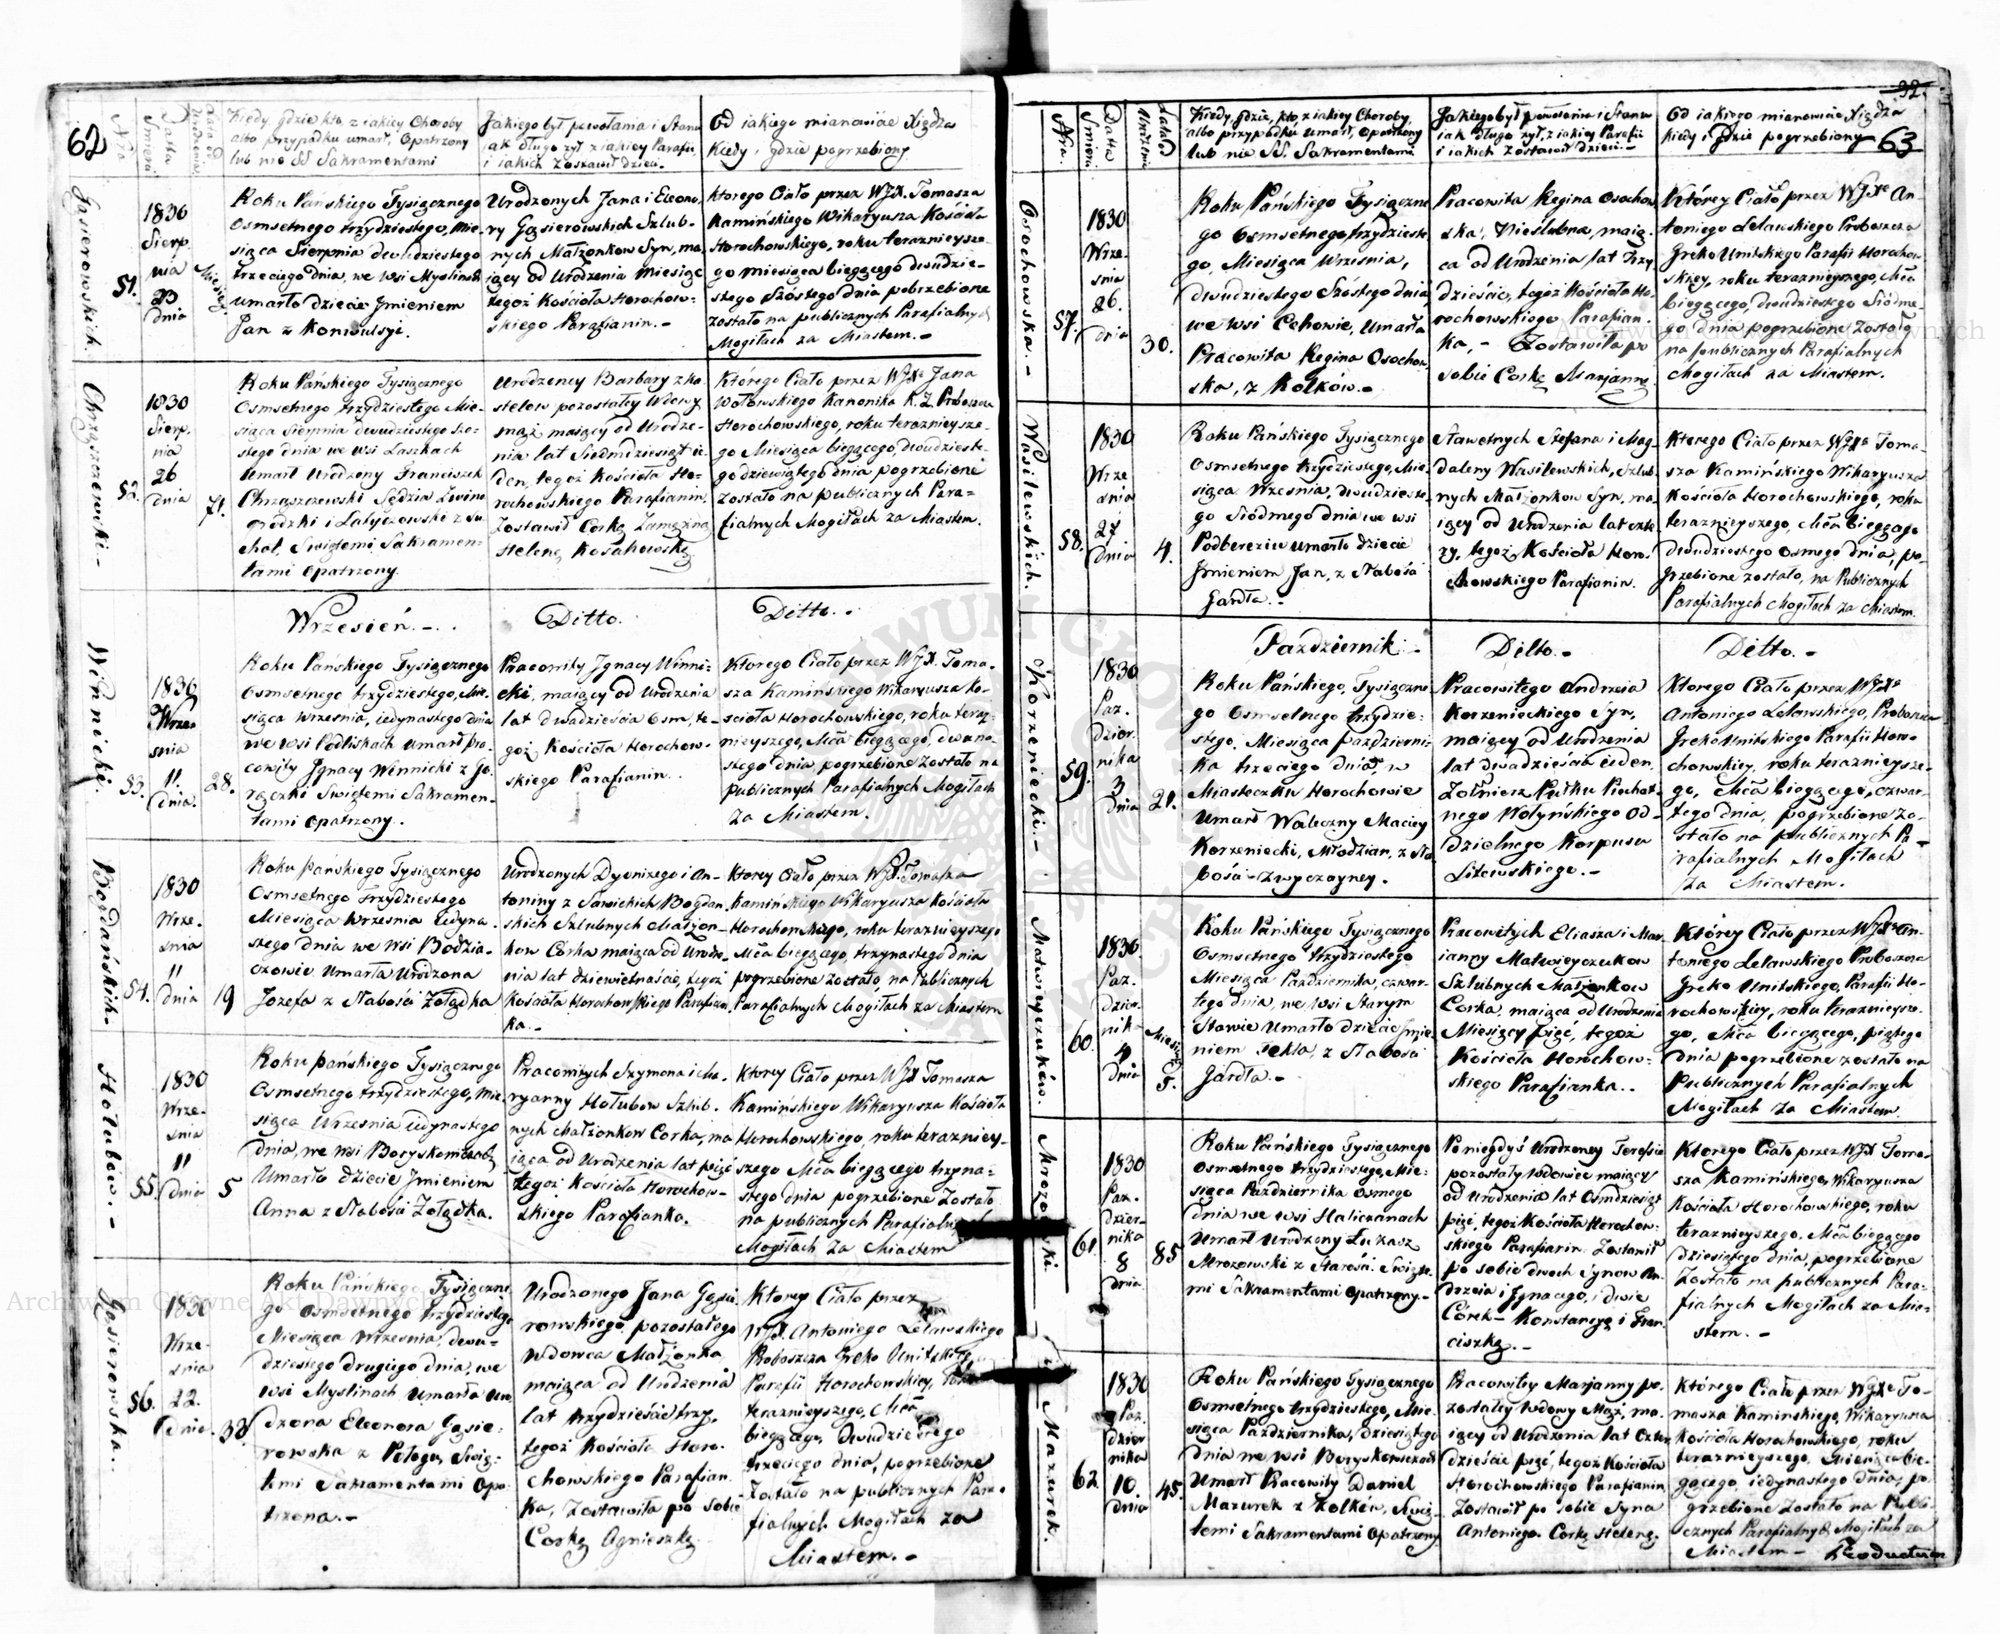 62
Kiedy, gdzie kto z iakiey Choroby
albo przypadku umarł, Opatrzony
lub nie SS Sakramentami
Jakiego był powołania i Stanu
iak długo żył z iakiey Parafii,
i iakich zostawił dzieci.
Od iakiego mianowicie Xiędza
Kiedy i gdzie pogrzebiony.
Gąsierowskich.
51.
1830
Sierp.
nia
23
dnia
Roku Pańskiego Tysiącznego
Osmsetnego trzydziestego, Mie-
siąca Sierpnia dwudziestego
trzeciego dnia, we wsi Myslinach
umarło dziecie Jmieniem
Jan z Konwulsyi.
Urodzonych Jana i Eleono.
ry Gąsierowskich Szlub-
nych Małżonkow Syn, ma.
iący od Urodzenia Miesiąc
tegoż Kościoła Horochow-
skiego Parafianin.-
ktorego Ciało przez WJX. Tomasza
Kamińskiego Wikaryusza Kościoła
Horochowskiego, roku teraznieysze-
go miesiąca bieżącego dwudzie-
stego Szóstego dnia pobrzebione
zostało na publicznych Parafialnych
Mogiłach za Miastem.-
Chrząszczewski.-
52.
1830
Sierp.
nia
26
dnia
71.
Roku Pańskiego Tysiącznego
Osmsetnego trzydziestego Mie-
siąca Sierpnia dwudziestego Szo-
stego dnia we wsi Laszkach
Umarł Urodzony Franciszek
Chrząszczewski Sędzia Zwino
grodzki i Latyczowski z Su
chot, Swiętemi Sakramen-
tami Opatrzony.
Urodzoney Barbary z Ko-
stelow pozostałey Wdowy
mąż maiący od Urodze-
nia lat Siedmdziesiąt ie-
den, tegoż Kościoła Ho-
rochowskiego Parafianin,
Zostawił Corkę Zamężną
Helenę Kosakowską
Którego Ciało przez WJXa Jana
Wołowskiego Kanonika K. Ł. Proboszcza
Horochowskiego, roku teraznieysze-
go Miesiąca bieżącego, dwudzieste-
go dziewiątego dnia pogrzebione
zostało na publicznych Para=
fialnych Mogiłach za Miastem.
Wrzesień.-.
Ditto.
Ditto..
Winnicki.
53.
1830
Wrze-
śnia
11.
dnia.
28.
Roku Pańskiego Tysiącznego
Osmsetnego trzydziestego, Mie-
siąca Września, iedynastego dnia
we wsi Podliskach Umarł pra-
cowity Jgnacy Winnicki z Go-
rączki Swiętemi Sakramen-
tami Opatrzony.
Pracowity Jgnacy Winni-
cki, maiący od Urodzenia
lat dwadzieścia Osm, te-
goż Kościoła Horochow-
skiego Parafianin.
Ktorego Ciało przez WJX. Toma-
sza Kamińskiego Wikaryusza Ko-
scioła Horochowskiego, roku teraz-
nieyszego, Mca bieżącego, dwuna-
stego dnia pogrzebione Zostało na
publicznych Parafialnych Mogiłach
Za Miastem.
Bogdańskich.
54.
1830
Wrze-
śnia
11
dnia
19
Roku Pańskiego Tysiącznego
Osmsetnego Trzydziestego
Miesiąca Września iedyna.
stego dnia we wsi Bodzia-
czowie Umarła Urodzona
Jozefa z Słabości Żołądka
Urodzonych Dyonizego i An-
toniny z Sawickich Bogdan.
skich Szlubnych Małżon-
kow Corka maiąca od Urodze-
nia lat dziewietnaście, tegoż
Kościoła Horochowskiego Parafian
ka.-
ktorey Ciało przez WJX Tomasza
Kamińskiego Wikaryusza Kościoła
Horochowskiego, roku teraznieyszego
Mca bieżącego, trzynastego dnia
pogrzebione Zostało, na Publicznych
Parafialnych Mogiłach za Miastem
Hołubów.-
55.
1830
Wrze-
śnia
11
dnia
5
Roku Pańskiego Tysiącznego
Osmsetnego trzydziestego, Mie-
siąca Września iedynastego
dnia, we wsi Boryskowiczach
Umarło dziecie Jmieniem
Anna z Słabości Żołądka.
Pracowitych Szymona i Ma-
ryanny Hołubow Szlub.
nych Małżonkow Corka, ma
iąca od Urodzenia lat pięć
tegoż Kościoła Horochow-
skiego Parafianka.
Ktorey Ciało przez WJX Tomasza
Kamińskiego Wikaryusza Kościoła
Horochowskiego, roku terazniey-
szego Mca bieżącego trzyna-
stego dnia pogrzebione Zostało
na publicznych Parafialnych
Mogiłach Za Miastem
Gąsierowska.
56.
1830
Wrze-
śnia
22.
dnia.
33
Roku Pańskiego Tysiączne
go Osmsetnego trzydziestego
Miesiąca Września, dwu-
dziestego drugiego dnia, we
wsi Myslinach Umarła Uro
dzona Eleonora Gąsie-
rowska z Połogu, Swię-
temi Sakramentami Opa-
trzona.-
Urodzonego Jana Gąsie.
rowskiego pozostałego
Wdowca Małżonka
maiąca od Urodzenia
lat trzydzieście trzy,
tegoż Kościoła Horo-
chowskiego Parafian.
ka, Zostawiła po Sobie
Corkę Agnieszkę.
Ktorey Ciało przez
WJX. Antoniego Lelawskiego
Proboszcza Greko Unitskiey
Parafii Horochowskiey, roku
teraznieyszego, Mca
bieżącego, Dwudziestego
trzeciego dnia, pogrzebione
Zostało na publicznych Para-
fialnych Mogiłach za
Miastem.-
32.
63
Nra.
Datta
Smierci
Lata od
Urodzenia
Kiedy, gdzie, kto, z iakiey Choroby,
albo przypadku umarł, Opatrzony
lub nie SS. Sakramentami
Jakiego był powołania i Stanu
iak długo żył, z iakiey Parafii
i iakich Zostawił dzieci.-
Od iakiego mianowicie Xiędza
kiedy i gdzie pogrzebiony
Osochowska.-
57.
1830
Wrze-
śnia
26.
dnia
30.
Roku Pańskiego Tysiączne
go Osmsetnego trzydzieste
go, Miesiąca Września,
dwudziestego Szóstego dnia
we wsi Cehowie, Umarła
Pracowita Regina Osochow
ska, z Kolków.-
Pracowita Regina Osochow
ska, Nieślubna, maią.
ca od Urodzenia lat trzy
dzieście, tegoż Kościoła Ho-
rochowskiego Parafian.
ka,- Zostawiła po
sobie Corkę Marjannę
Którey Ciało przez WJXa An-
toniego Lelawskiego Proboszcza
Greko Unitskiego Parafii Horochow
skiey, roku teraznieyszego, Mca
bieżącego, dwudziestego Siódme-
go dnia pogrzebione Zostało
na publicznych Parafialnych
Mogiłach za Miastem.
Wasilewskich.
58.
1830
Wrze
śnia
27
dnia
4.
Roku Pańskiego Tysiącznego
Osmsetnego trzydziestego, Mie-
siąca Września, dwudzieste-
go Siódmego dnia we wsi
Podbereziu umarło dziecie
Jmieniem Jan, z Słabości
Gardła.-
Sławetnych Stefana i Mag-
daleny Wasilewskich, Szlub.
nych Małżonkow Syn, ma-
iący od Urodzenia lat czte
ry, tegoż Kościoła Horo-
chowskiego Parafianin.
Ktorego Ciało przez WJXa Toma-
sza Kamińskiego Wikaryusza
Kościoła Horochowskiego, roku
teraznieyszego, Mca bieżącego
dwudziestego Osmego dnia, po-
grzebione zostało, na Publicznych
Parafialnych Mogiłach za Miastem.
Październik.-
Ditto.-
Ditto.-
Korzeniecki.-
59.
1830
Paź-
dzier-
nika
3
dnia
21.
Roku Pańskiego, Tysiączne
go Osmsetnego trzydzie-
stego, Miesiąca Październi-
ka trzeciego dnia, w
Miasteczku Horochowie
Umarł Waleczny Maciey
Korzeniecki, Młodzian, z Sła
bości zwyczayney.
Pracowitego Andrzeia
Korzenieckiego Syn,
maiący od Urodzenia
lat dwadzieścia ieden,
Żołnierz Pułku Piechot-
nego Wołyńskiego Od-
dzielnego Korpusu
Litewskiego.-
Ktorego Ciało przez WJXa
Antoniego Lelawskiego, Proboszcza
Greko Unitskiego Parafii Horo-
chowskiey, roku teraznieysze-
go, Mca bieżącego, czwar-
tego dnia, pogrzebione Zo-
stało na publicznych Pa-
rafialnych Mogiłach
Za Miastem.
Matwieyczuków.
60.
1830
Paź.
dzier.
nika
4
dnia
Miesięcy
5.
Roku Pańskiego Tysiącznego
Osmsetnego trzydziestego
Miesiąca Października, czwar-
tego dnia, we wsi Starym
Stawie Umarło dziecie Jmie-
niem Tekla, z Słabości
Gardła.-
Pracowitych Eliasza i Mar-
ianny Matwieyczukow
Szlubnych Małżonkow
Corka, maiąca od Urodzenia
Miesięcy pięć, tegoż
Kościoła Horochow-
skiego Parafianka..
Którey Ciało przez WJXa An-
toniego Lelawskiego Proboszcza
Greko Unitskiego, Parafii Ho-
rochowskiey, roku teraznieysze-
go, Mca bieżącego, piątego
dnia pogrzebione zostało na
Publicznych Parafialnych
Mogiłach Za Miastem.
Mrozowski.
61.
1830
Paź-
dzier-
nika
8
dnia
85
Roku Pańskiego Tysiącznego
Osmsetnego trzydziestego, Mie-
siąca Października Osmego
dnia we wsi Haliczanach
Umarł Urodzony Łukasz
Mrozowski z Starości. Święte-
mi Sakramentami Opatrzony-
Po niegdyś Urodzoney Teresie
pozostały Wdowiec maiący
od Urodzenia lat Osmdziesiąt
pięć, tegoż Kościoła Horochow-
skiego Parafianin. Zostawił
po sobie dwoch Synow An.
drzeia i Jgnacego, i dwie
Corek- Konstancyę i Fran-
ciszkę.-
Ktorego Ciało przez WJX Toma-
sza Kamińskiego, Wikaryusza
Kościoła Horochowskiego, roku
teraznieyszego, Mca bieżącego
dziesiątego dnia, pogrzebione
Zostało na publicznych Para-
fialnych Mogiłach za Mia-
stem.-
Mazurek.
62
1830
Paź.
dzier
nika
10.
dnia
45.
Roku Pańskiego Tysiącznego
Osmsetnego trzydziestego, Mie-
siąca Października, dziesiątego
dnia we wsi Boryskowiczach
Umarł Pracowity Daniel
Mazurek z Kolków, Swię-
temi Sakramentami Opatrzony
Pracowitey Marjanny po.
zostałey Wdowy Mąż, ma-
iący od Urodzenia lat Czter
dzieście pięć, tegoż Kościoła
Horochowskiego Parafianin
Zostawił po sobie Syna
Antoniego Corkę Helenę.
Którego Ciało przez WJXa To-
masza Kamińskiego, Wikaryusza
Kościoła Horochowskiego, roku
teraznieyszego, Miesiąca bie-
żącego, iedynastego dnia, po
grzebione Zostało na Publi-
cznych Parafialnych Mogiłach za
Miastem-